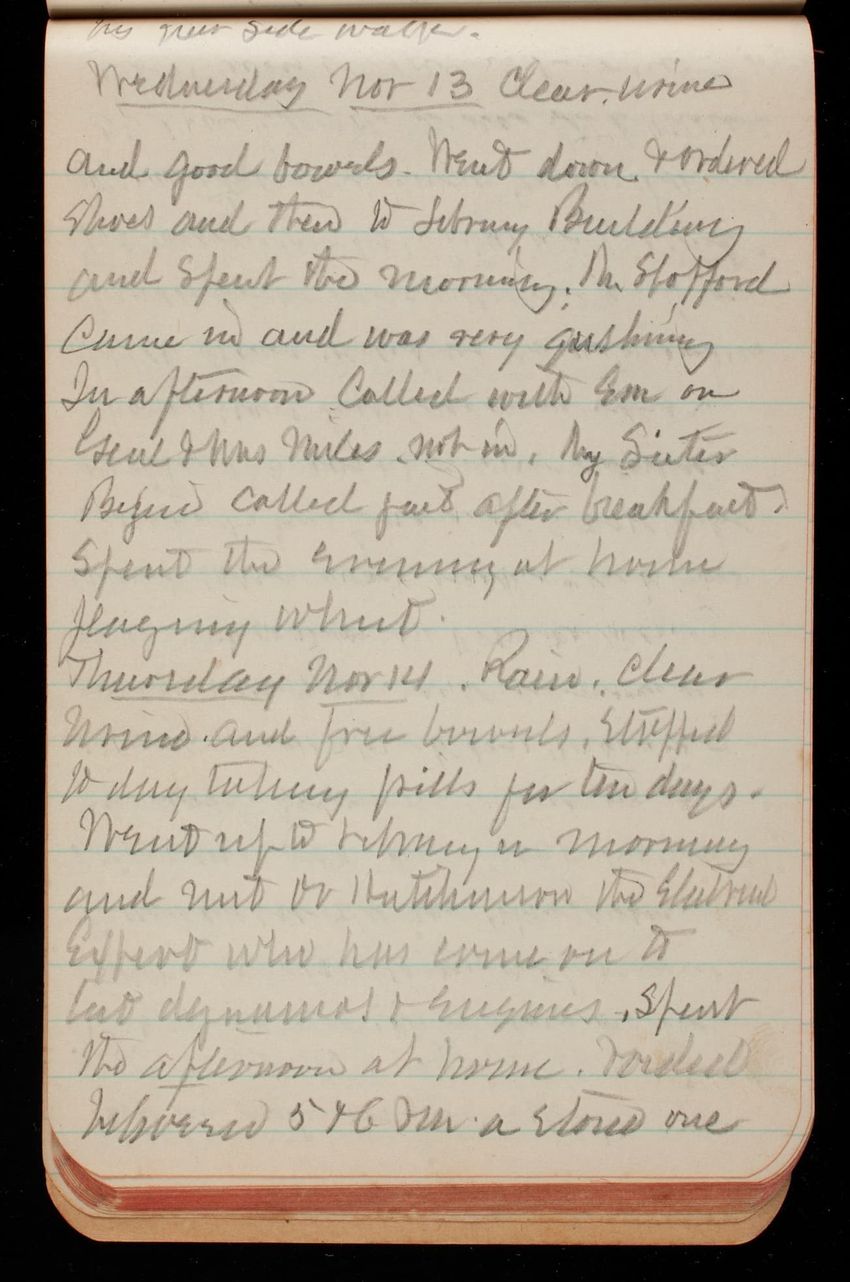 his side walks.
Wednesday Nov 13 Clear. urine
and good bowels. Went down & ordered
Shoes and then to Library Building
and Spent the morning. Mr. Stofford
Came in and was very gushing
In afternoon Called with Em on
Genl & Mrs Miles. not in. My Sister
called just after breakfast
Spent the Evening at home
playing whist.
Thursday Nov 14. Rain. Clear
Urine and free bowels. Stopped
to day taking pills for ten days.
Went up to Library in morning
and met Dr Hutchinson the Electrical
Expert who has come on to
test dynamos & Engines. Spent
the afternoon at home.
between 5 & 6 P.M. a Stone one